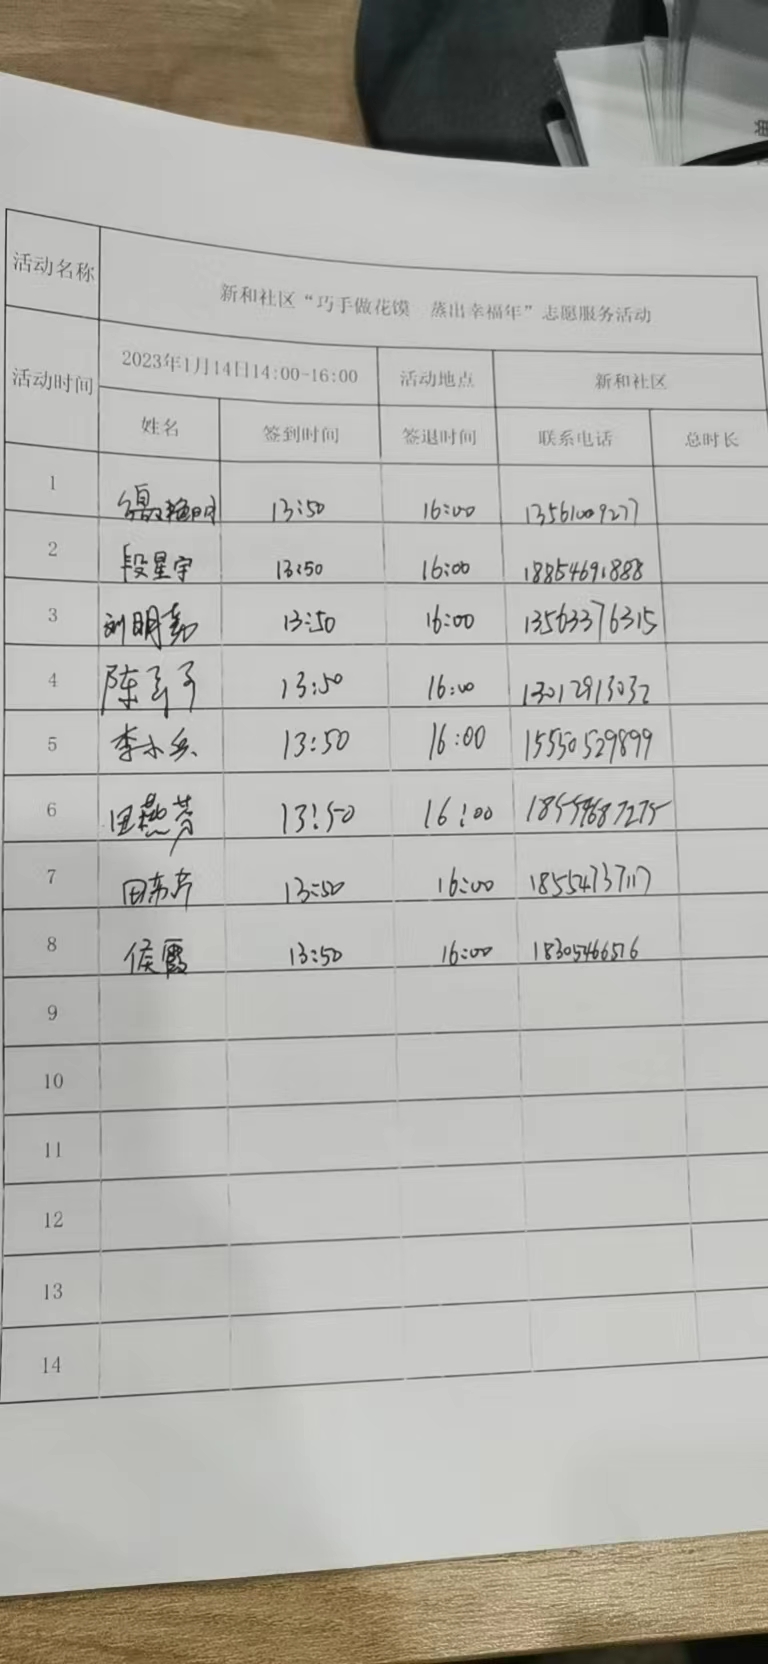 活动名称 新和社区“巧手做花馍 蒸出幸福年”志愿服务活动
活动时间 2023年1月14日14:00-16:00 活动地点 新和社区
姓名 签到时间 签退时间 联系电话 总时长
1 13:50 16:00 13561009277
2 段星宇 13:50 16:00 18854691888
3 刘明 13:50 16:00 13563376315
4 陈 子 13:50 16:00 13012913032
5 李小 13:50 16:00 15550529899
6 田燕芳 13:50 16:00 18559687275
7 田 13:50 16:00 18554737117
8 侯霞 13:50 16:00 18305466516
9
10
11
12
13
14